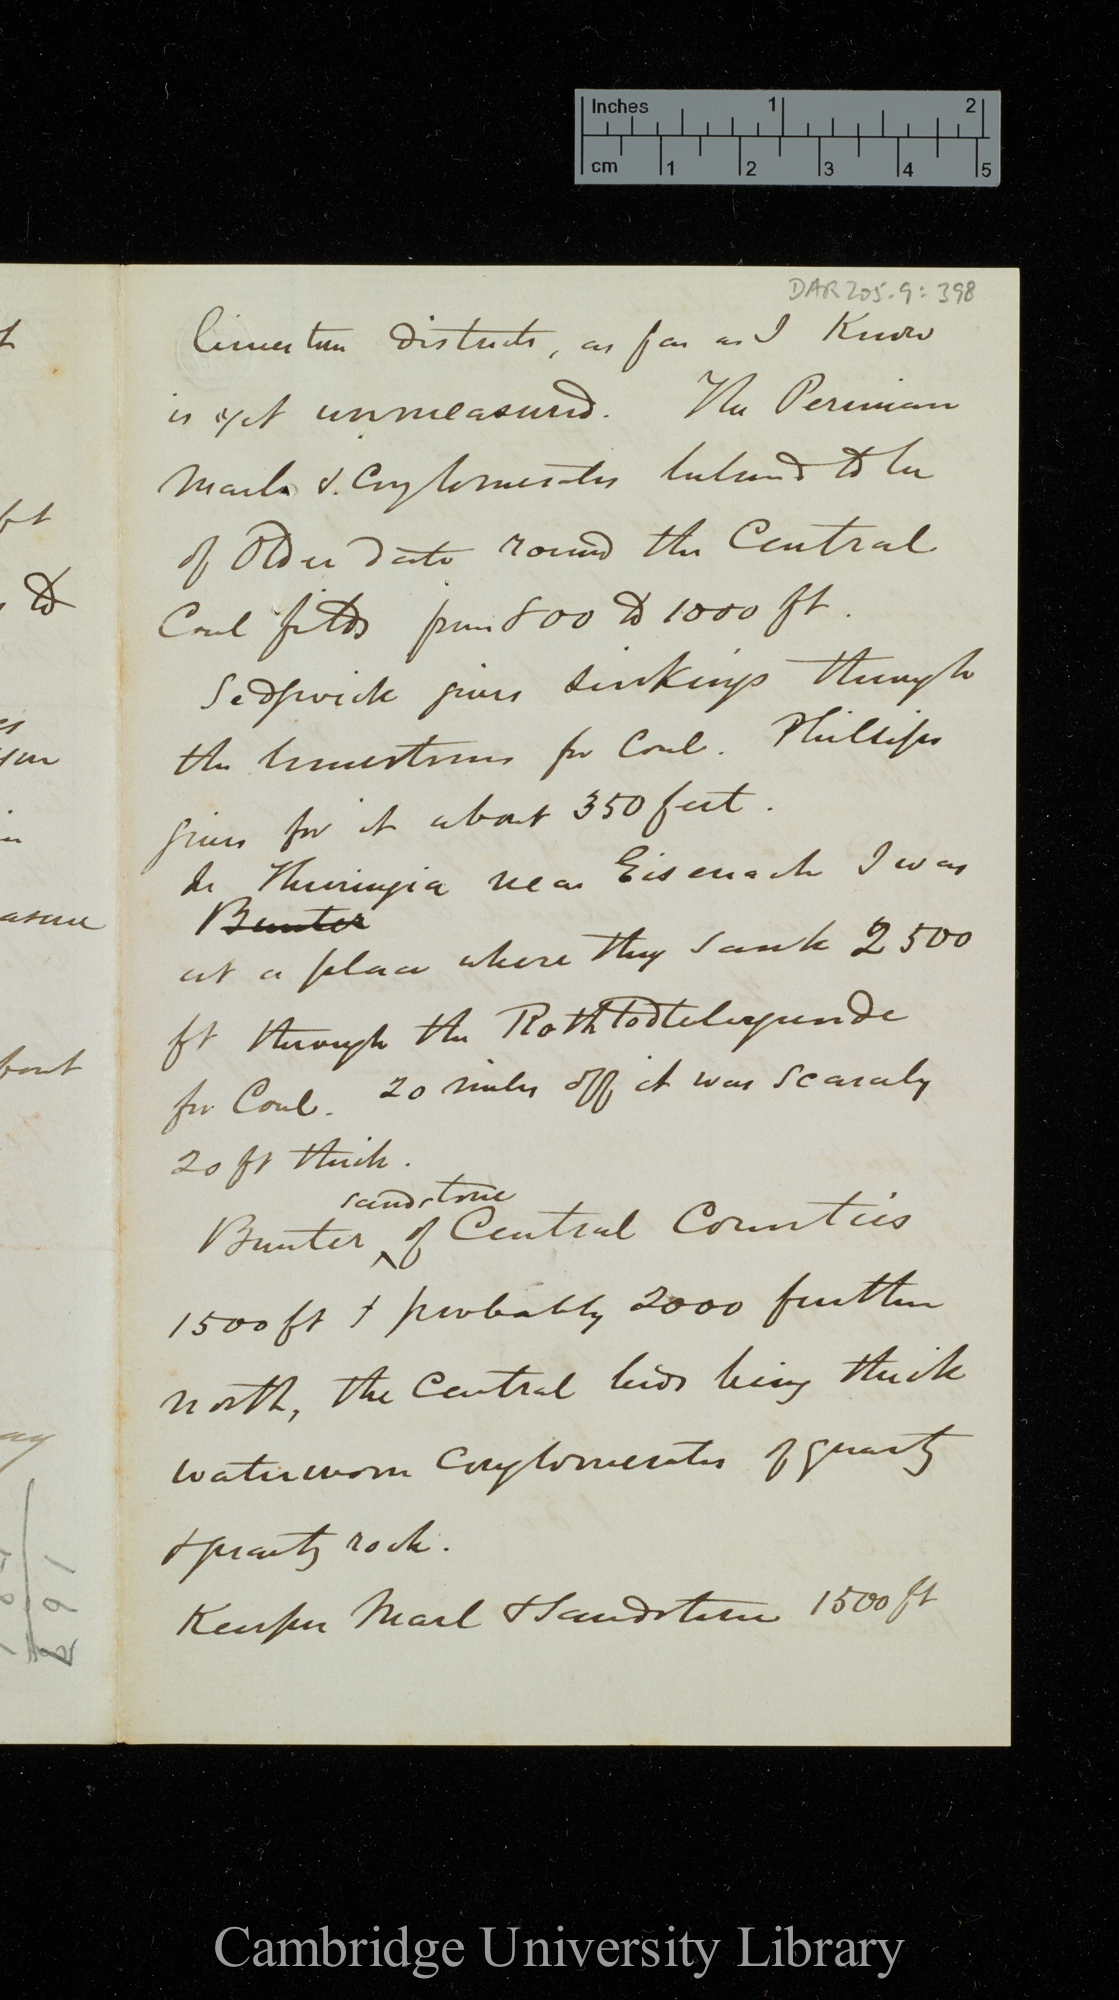 Inches 1 2
cm 1 2 3 4 5
DAR 205.9: 398
limestone districts, as far as I know
is yet unmeasured. The Permian
Marls & Conglomerates believed to be
of Older date round the Central
Coal fields from 800 to 1000 ft.
Sedgwick gives sinkings through
the limestones for Coal. Phillips
gives for it about 350 feet.
In Thuringia near Eisenach I was
Bunter
at a place where they sank 2500
ft through the Rothtodteliegende
for Coal. 20 miles off it was scarcely
20 ft thick.
sandstone
Bunter ^ of Central Counties
1500 ft & probably 2000 further
north, the Central beds being thick
waterworn Conglomerates of quartz
& quartz rock.
Keuper Marl & Sandstone 1500 ft
ft
to
asure
bout
Cambridge University Library